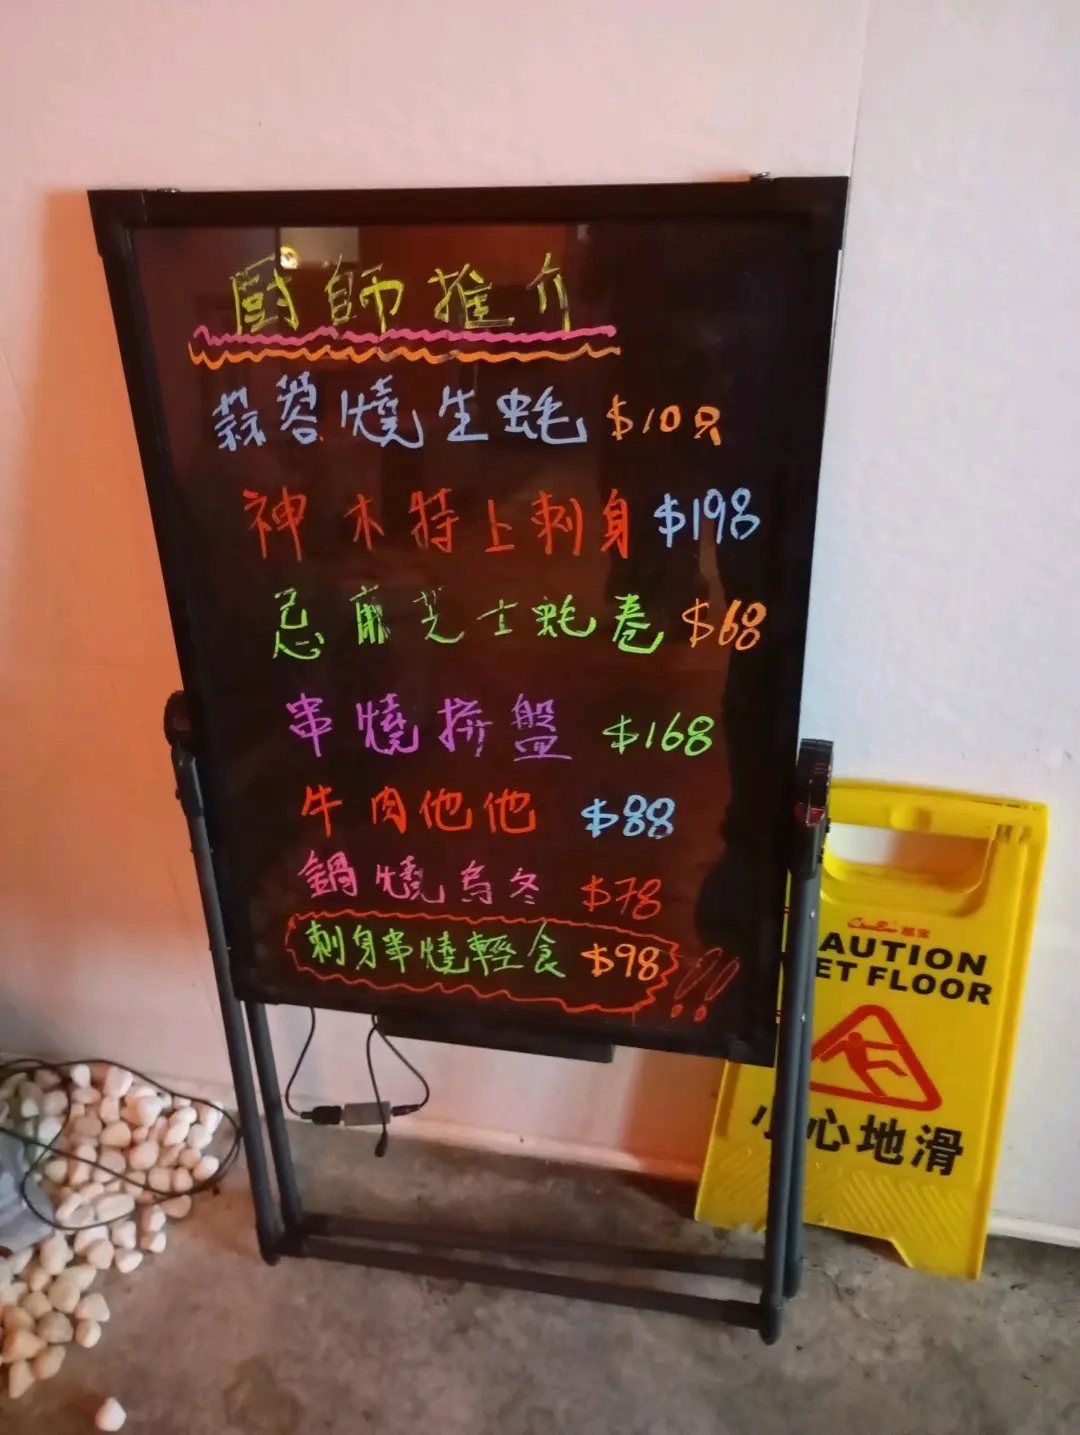 廚師推介
蒜蓉燒生蚝 $108
神木特上刺身 $198
忌廉芝士蚝卷 $68
串燒拼盤 $168
牛肉他他 $88
鍋燒烏冬 $78
刺身串燒輕食 $98 !!
AUTION
ET FLOOR
小心地滑